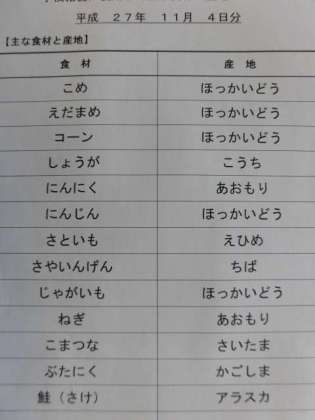 平成　２７年　１１月　４日分
【主な食材と産地】
食　材　産　地
こめ　ほっかいどう
えだまめ　ほっかいどう
コーン　ほっかいどう
しょうが　こうち
にんにく　あおもり
にんじん　ほっかいどう
さといも　えひめ
さやいんげん　ちば
じゃがいも　ほっかいどう
ねぎ　あおもり
こまつな　さいたま
ぶたにく　かごしま
鮭（さけ）　アラスカ